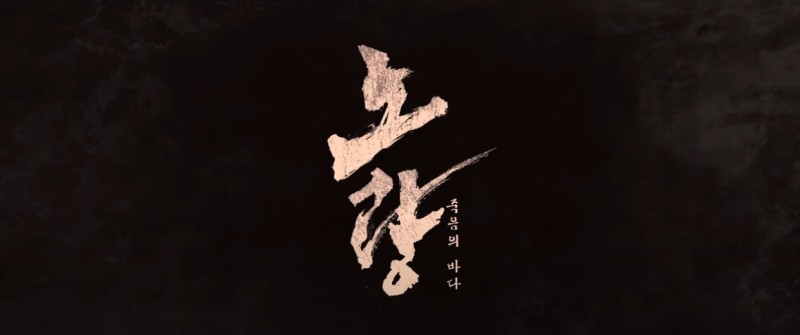 노량
죽음의 바다